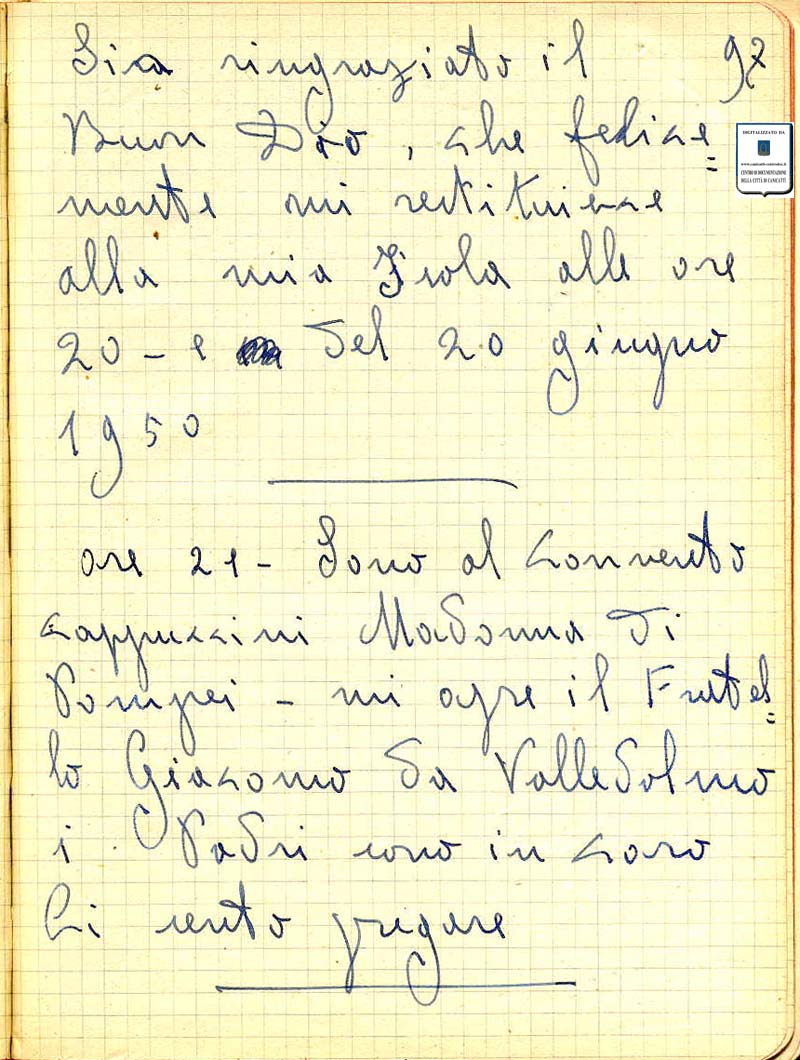 Sia ringraziato il 97
Buon Dio, che felice=
mente mi restituisce
alla mia Isola alle ore
20 - e del 20 giugno
1950
ore 21 - Sono al Convento
Cappuccini Madonna di
Pompei - mi apre il Fratel=
lo Giacomo da Valledolmo
i Padri sono in Coro
Li sento pregare
DIGITALIZZATO DA
CENTRO DI DOCUMENTAZIONE
DELLA CITTÀ DI CANICATTÌ